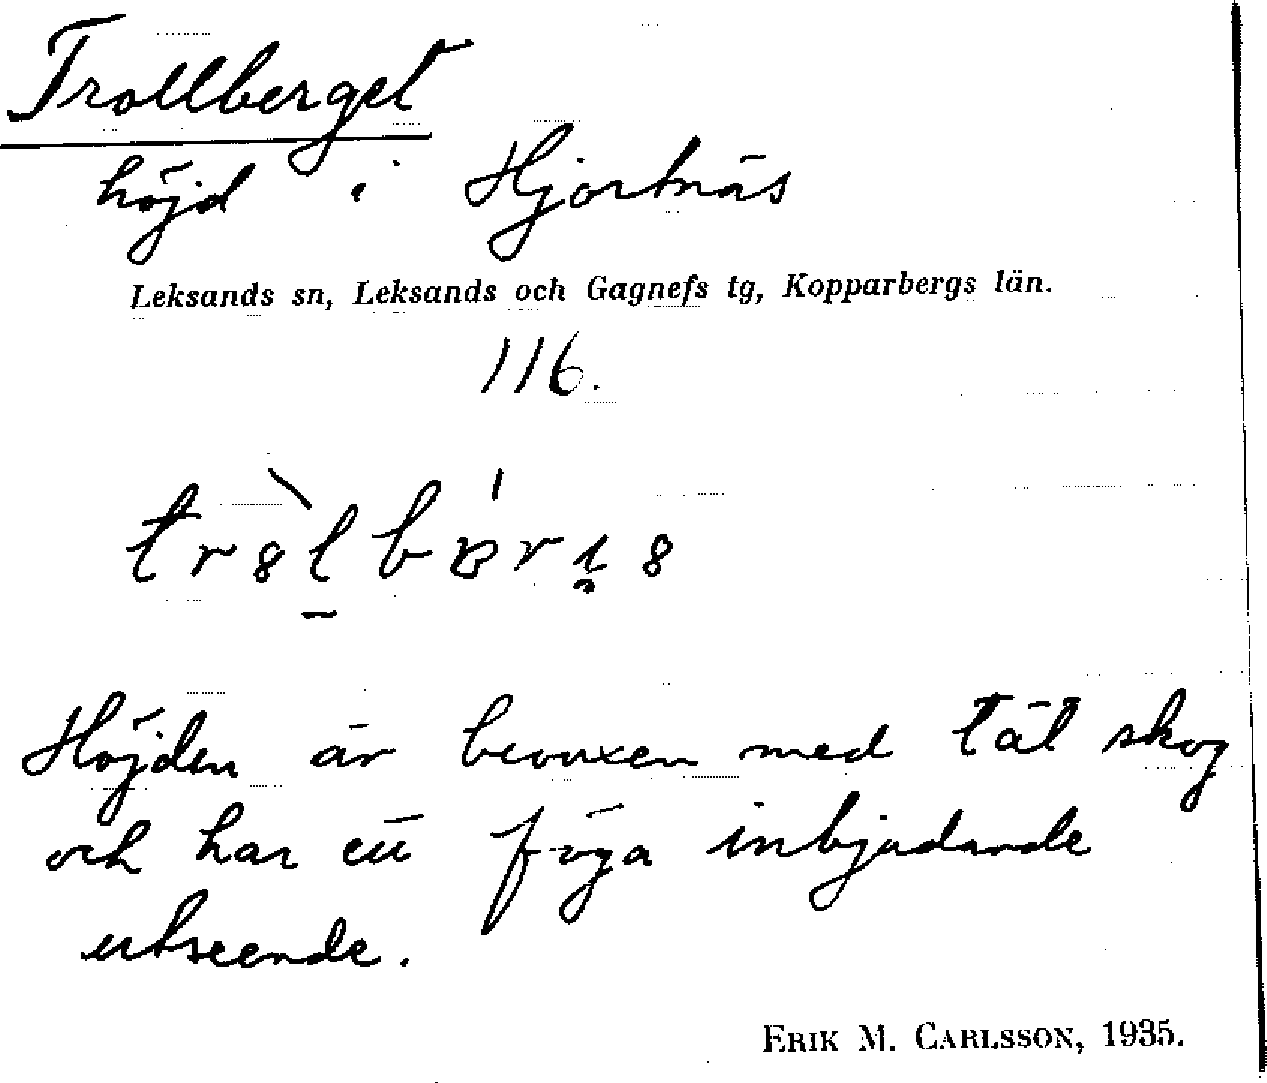 Trollberget
höjd i Hjortnäs
Leksands sn, Leksands och Gagnefs tg, Kopparbergs län.
116.
Höjden är bevuxen med tät skog
och har ett föga inbjudande
utseende.
ERIK M. CARLSSON, 1935.